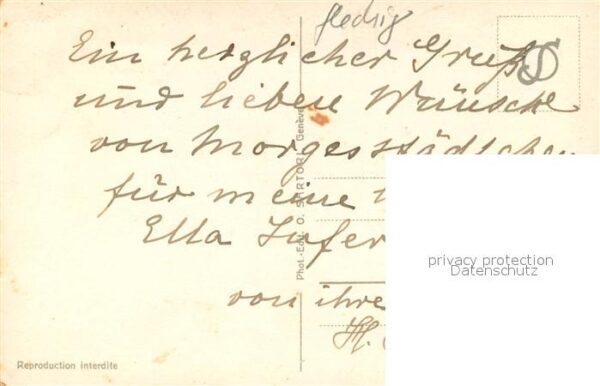 fleckig
Ein herzlicher Gruß
und lieben Wünsche
von Morgesstädtchen
für meine
Ella
von ihre
H.
Phot.-Edit. O. SARTORI, Genève
Reproduction interdite
privacy protection
Datenschutz